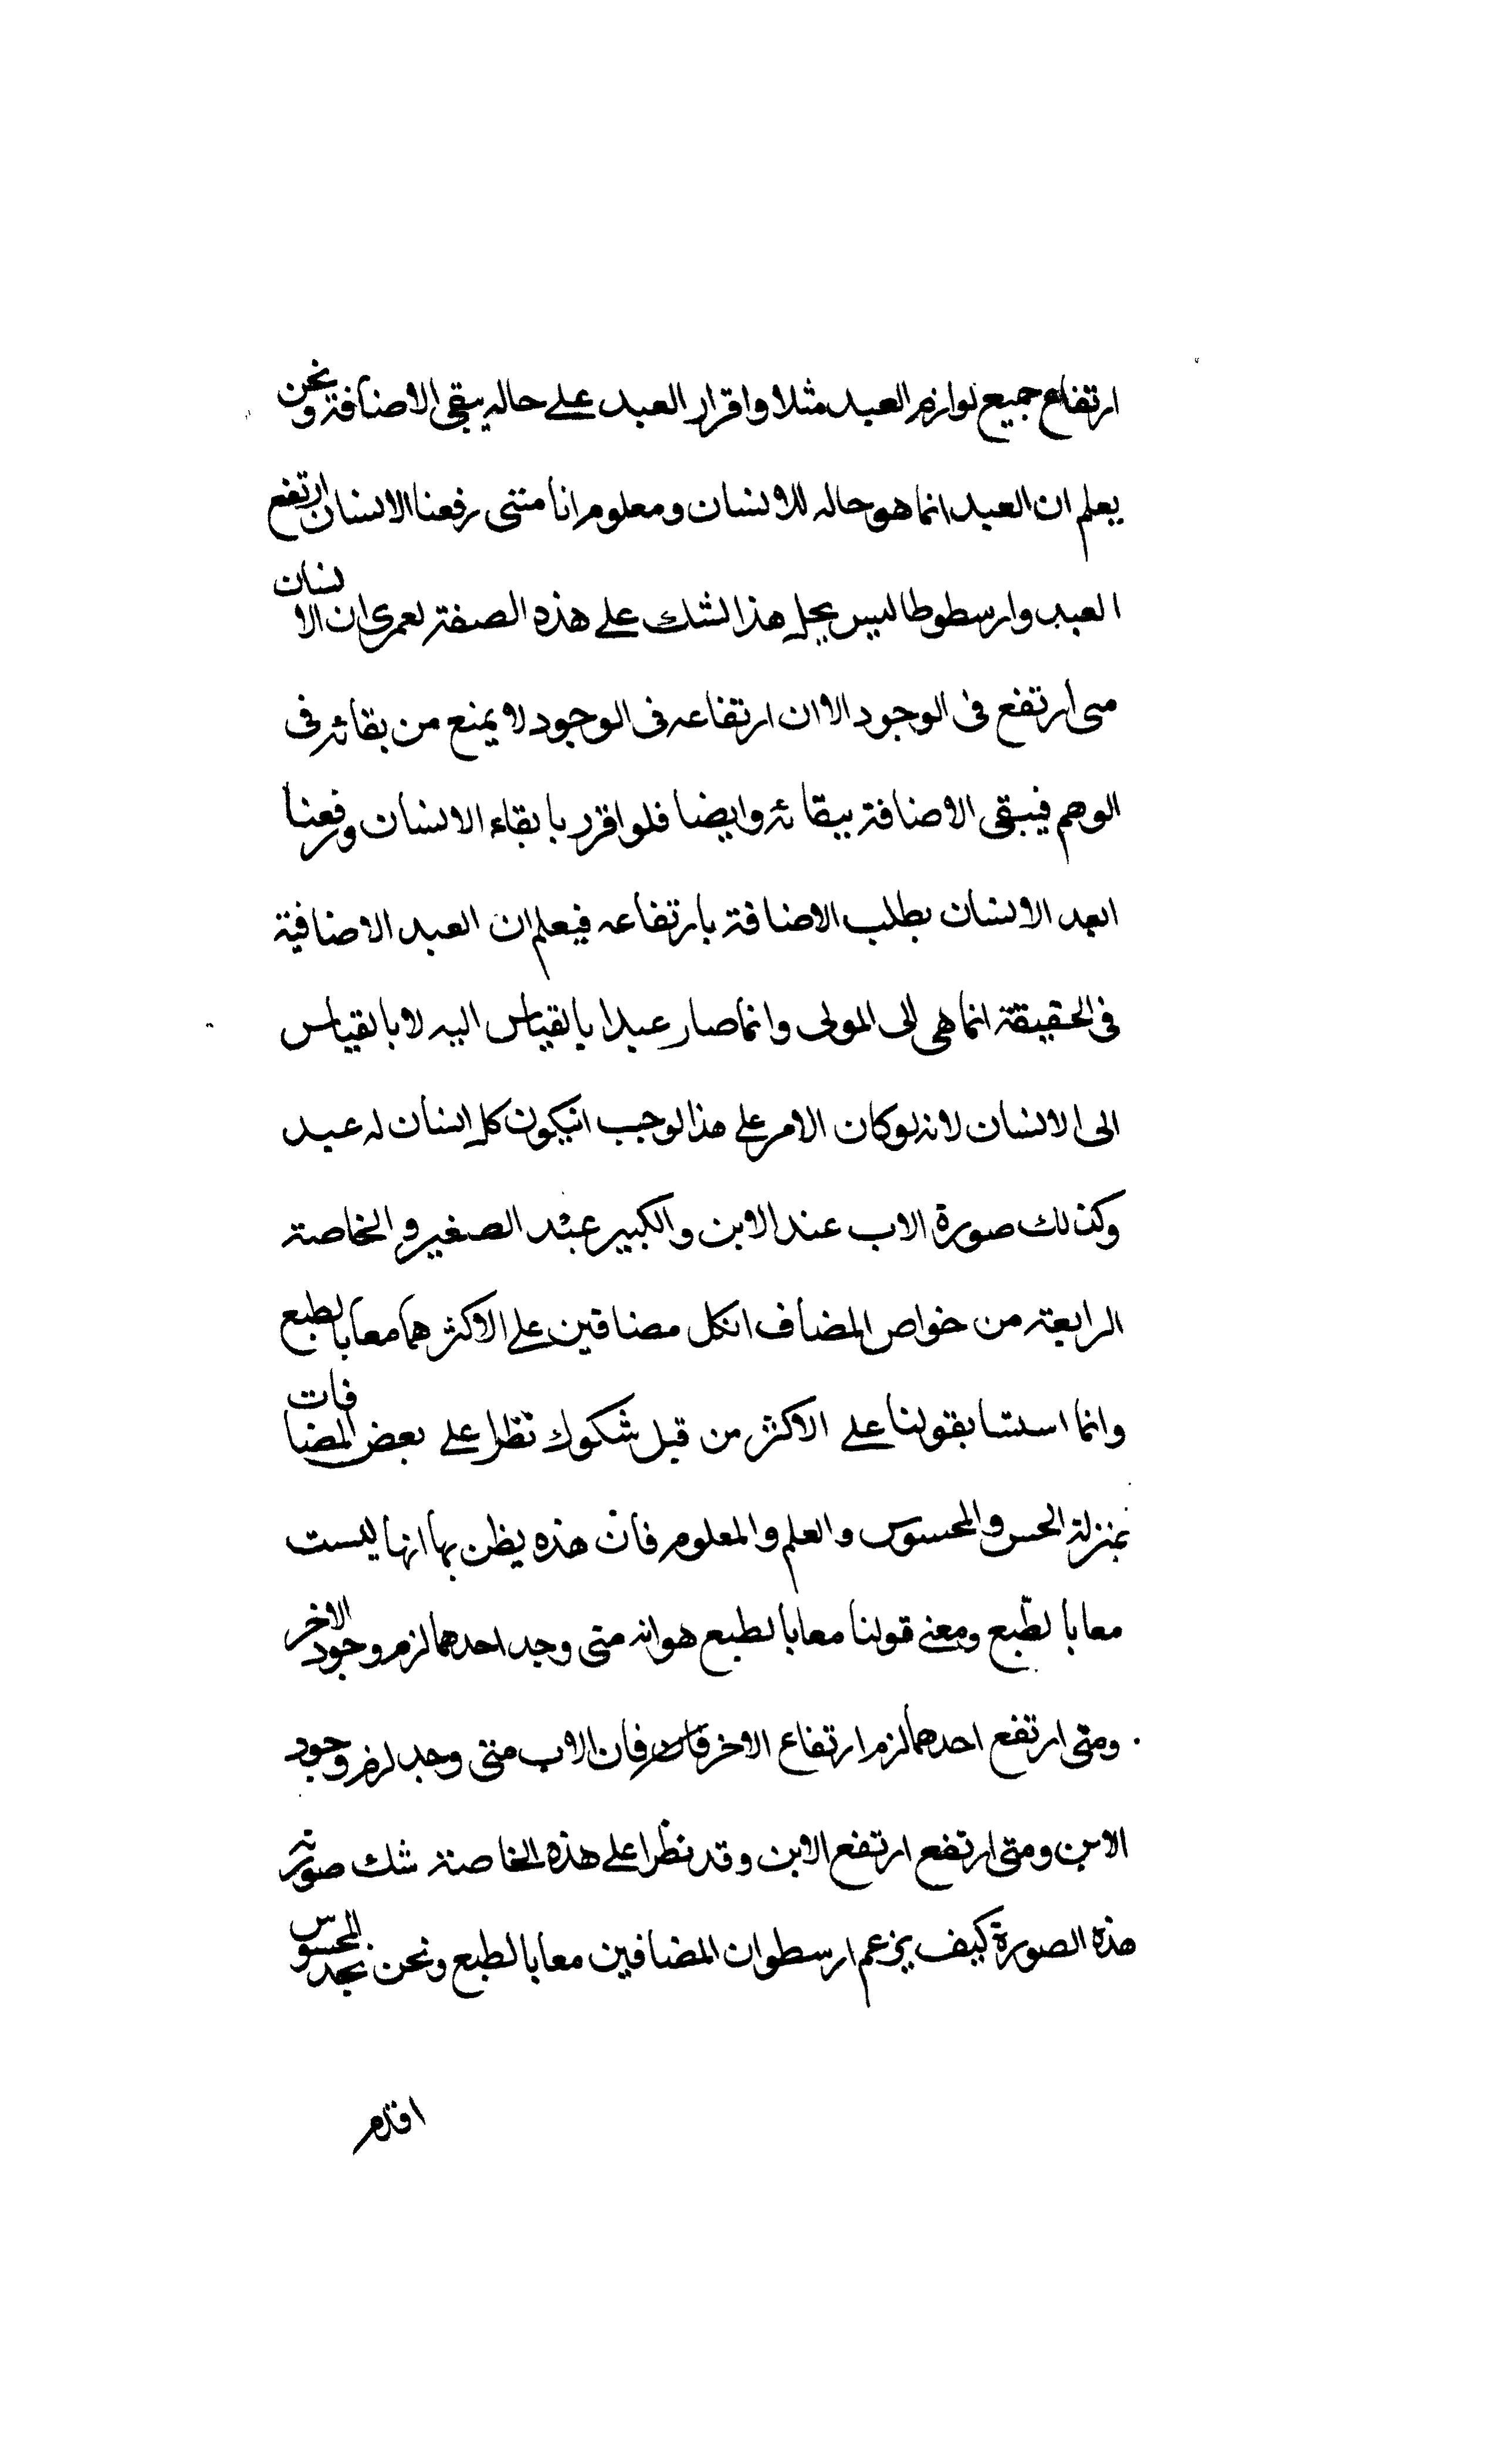 ارتفاع جميع لوازم العبد مثلا واقرار العبد على حاله يبقى الاضافة ونحن
يعلم ان العبد انما هو حاله للانسان ومعلوم انا متى رفعنا الانسان ارتفع
العبد وارسطوطاليس يحل هذا الشك على هذه الصفة لعمرى ان الانسان
متى ارتفع فى الوجود الا ان ارتفاعه فى الوجود لا يمنع من بقائه فى
الوهم فيبقى الاضافة ببقائه وايضا فلو اقرر بابقاء الانسان ورفعنا
العبد الانسان بطلب الاضافة بارتفاعه فيعلم ان العبد الاضافية
فى الحقيقة انما هى الى المولى وانما صار عبدا بالقياس اليه لا بالقياس
الى الانسان لانه لو كان الامر على هذا لوجب انيكون كل انسان له عبد
وكذلك صورة الاب عند الابن والكبير عند الصغير والخاصة
الرابعة من خواص المضاف انكل مضافين على الاكثر هما معا بالطبع
وانما استثنا بقولنا على الاكثر من قبل شكوك تظرا على بعض المضافات
بمنزلة الحس والمحسوس والعلم والمعلوم فان هذه يظن بها انها ليست
معا بالطبع ومعنے قولنا معا بالطبع هو انه متى وجد احدهما لزم وجود الاخر
ومتى ارتفع احدهما لزم ارتفاع الاخر فان الاب متى وجد لزم وجود
الابن ومتى ارتفع ارتفع الابن وقد نظرا على هذه الخاصة شك صورته
هذه الصورة كيف يزعم ارسطو ان المضافين معا بالطبع ونحن نجد المحسوس
اقدم